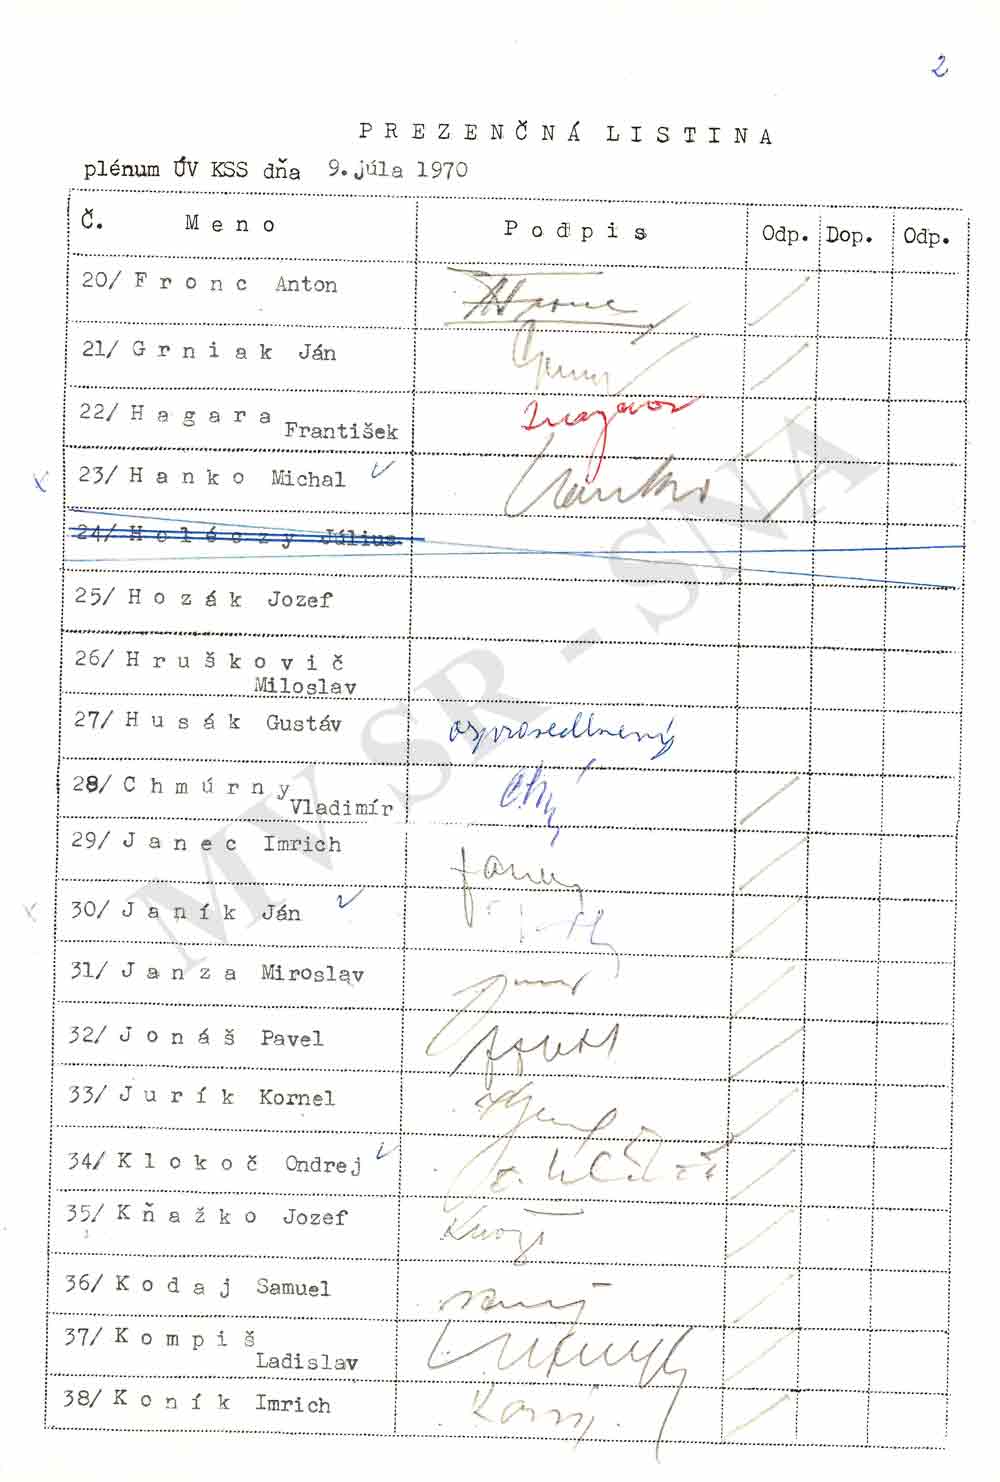 2
PREZENČNÁ LISTINA
plénum ÚV KSS dňa 9. júla 1970
Č. Meno Podpis Odp. Dop. Odp.
20/ Fronc Anton
21/ Grniak Ján
22/ Hagara
František
23/ Hanko Michal
24/ Holéczy Július
25/ Hozák Jozef
26/ Hruškovič
Miloslav
27/ Husák Gustáv ospravedlnený
28/ Chmúrny
Vladimír
29/ Janec Imrich
30/ Janík Ján
31/ Janza Miroslav
32/ Jonáš Pavel
33/ Jurík Kornel
34/ Klokoč Ondrej
35/ Kňažko Jozef
36/ Kodaj Samuel
37/ Kompiš
Ladislav
38/ Koník Imrich
MV SR - SNA